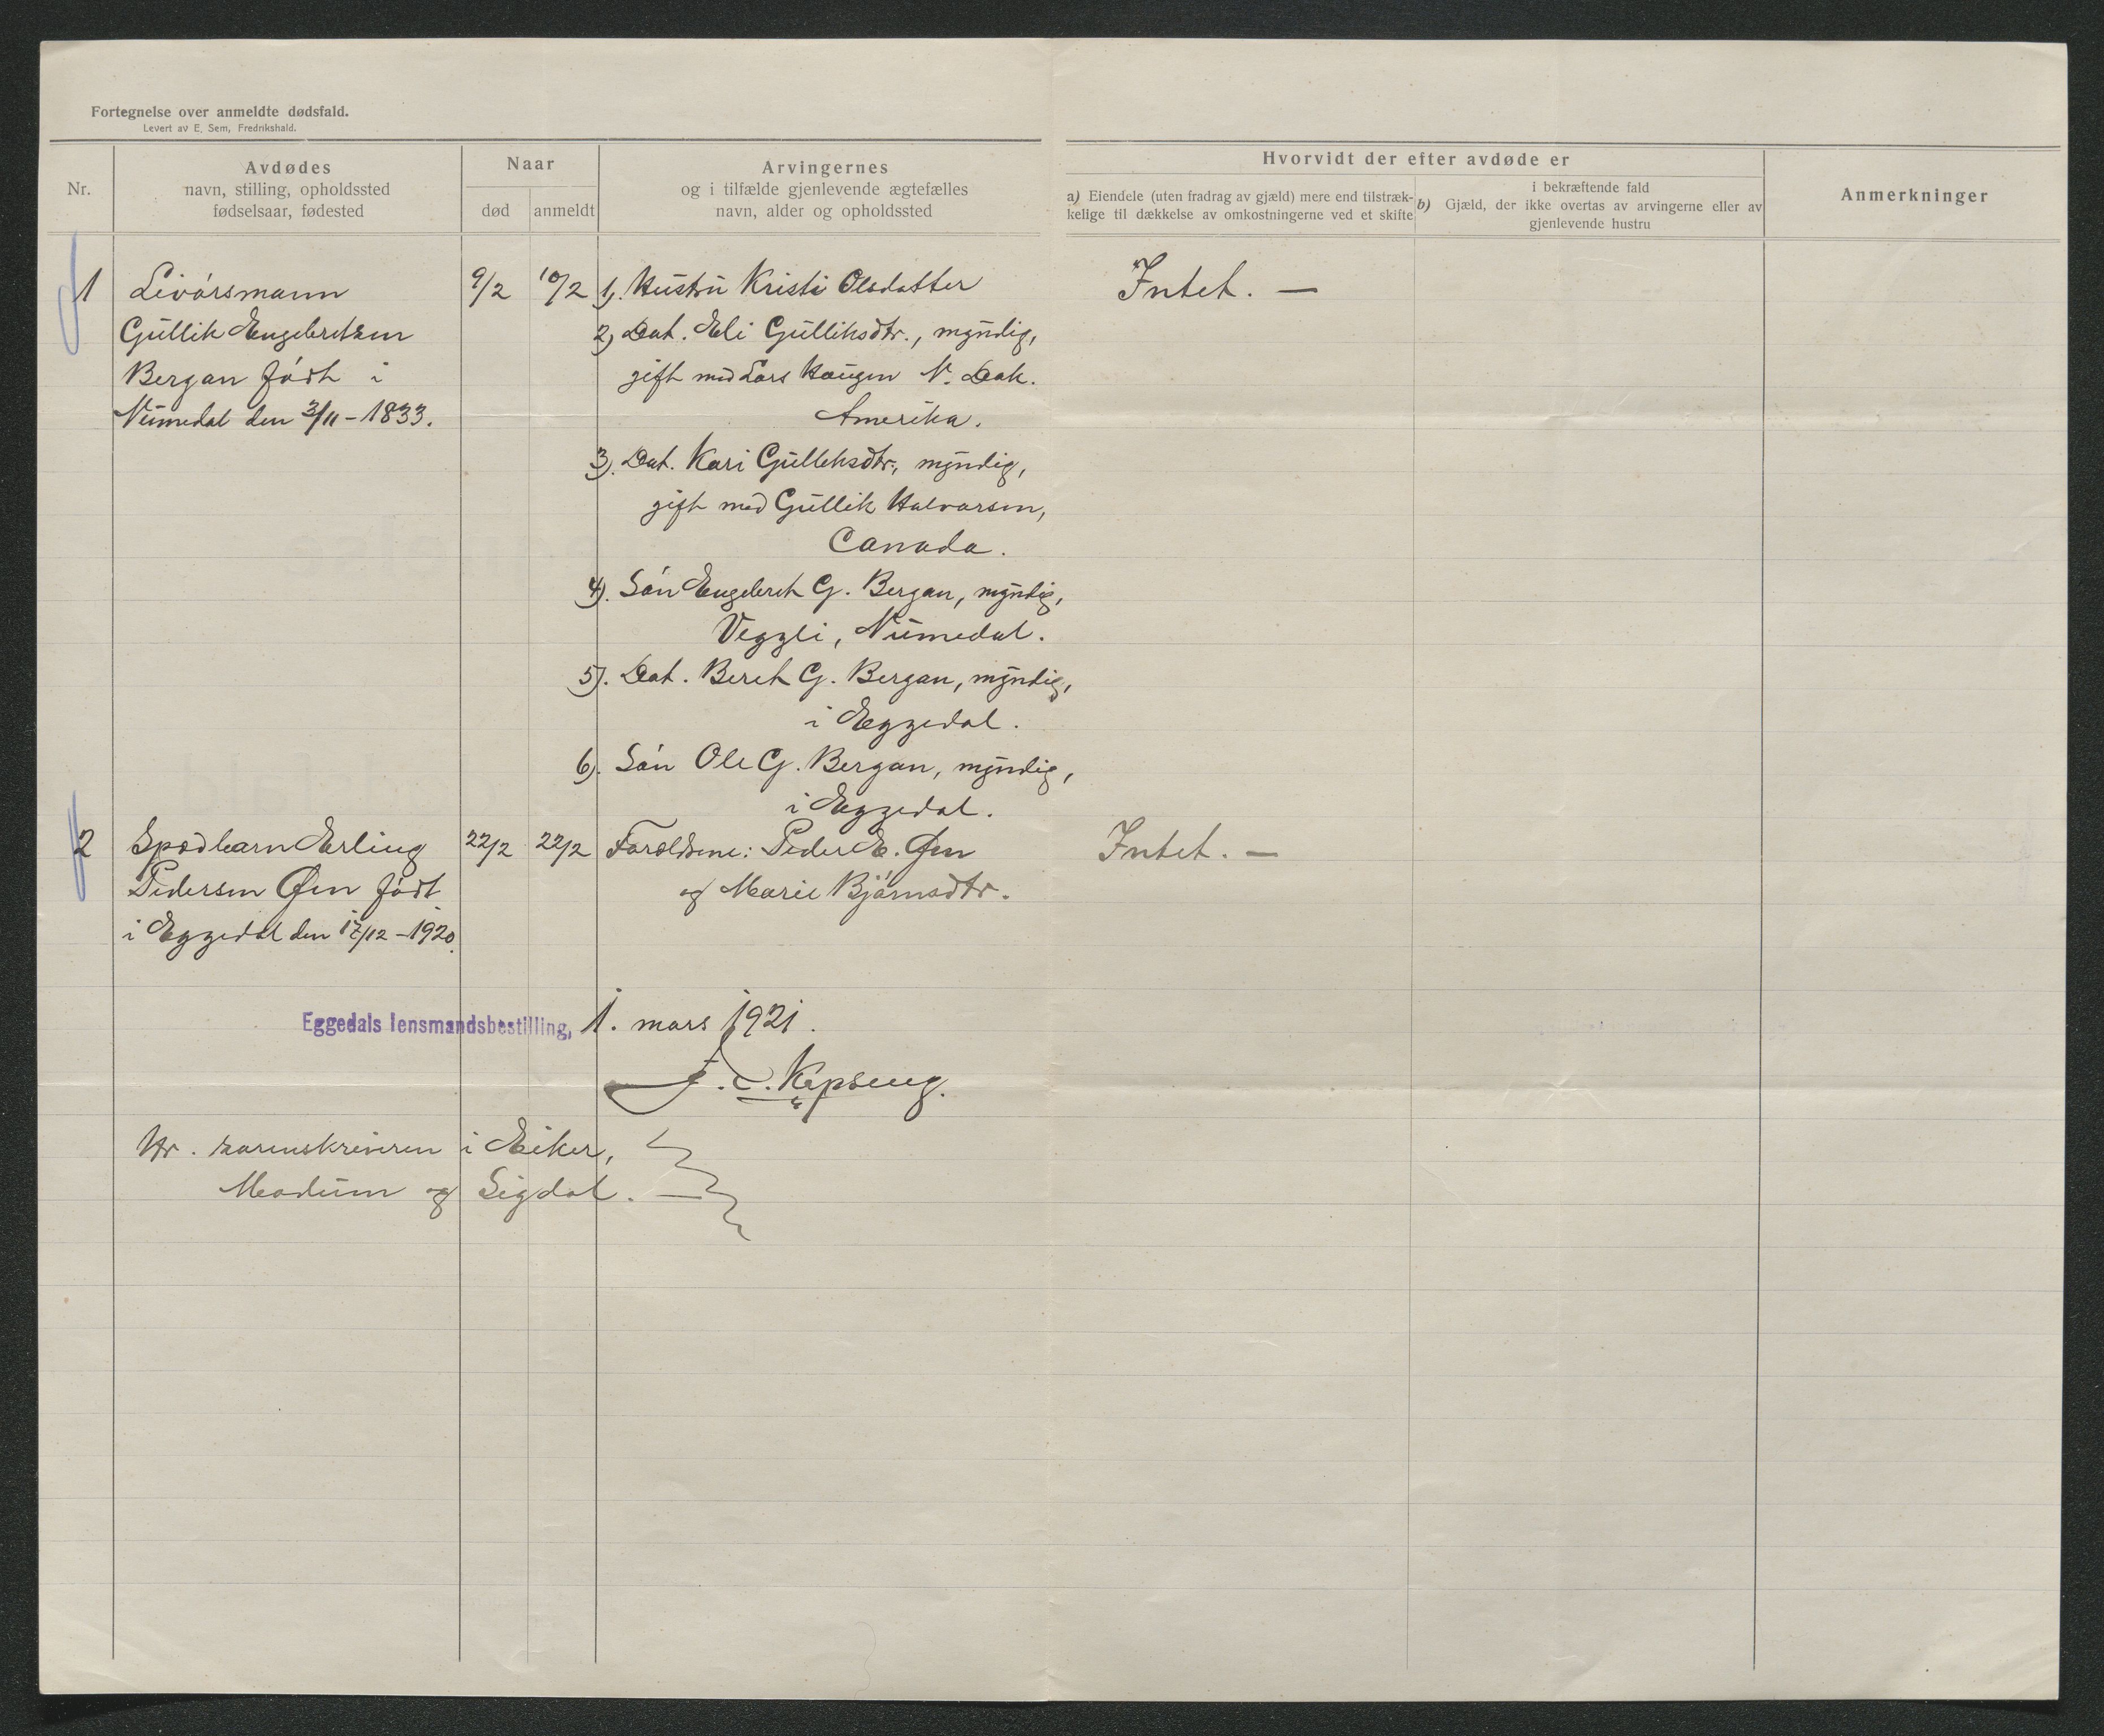 Fortegnelse over anmeldte dødsfald.
Levert av E. Sem, Fredrikshald.
Nr.
Avdødes
navn, stilling, opholdssted
fødselsaar, fødested
Naar
død
anmeldt
Arvingernes
og i tilfælde gjenlevende ægtefælles
navn, alder og opholdssted
Hvorvidt der efter avdøde er
a) Eiendele (uten fradrag av gjæld) mere end tilstræk-
kelige til dækkelse av omkostningerne ved et skifte
i bekræftende fald
b) Gjæld, der ikke overtas av arvingerne eller av
gjenlevende hustru
Anmerkninger
1
Livórsmann
Gullik Engebretsen
Bergan födt i
Numedal den 3/11 - 1833.
9/2
10/2
1). Hustru Kristi Olsdatter
2) Dat. Eli Gulliksdtr., myndig,
gift med Lars Haugen N. Dak.
Amerika.
3). Dat. Kari Gulliksdtr., myndig,
gift med Gullik Halvorsen,
Canada.
4). Sön Engebret G. Bergan, myndig,
Veggli, Numedal.
5). Dat. Beret G. Bergan, myndig,
i Eggedal.
6). Sön Ole G. Bergan, myndig,
i Eggedal.
Intet. —
2
Spædbarn Erling
Pedersen Øen födt
i Eggedal den 17/12 - 1920.
22/2
22/2
Foreldrene: Peder E. Øen
og Marie Björnsdtr.
Intet. —
Eggedals lensmandsbestilling, 1. mars 1921.
Hr. sorenskriveren i Eiker,
Modum og Sigdal. —